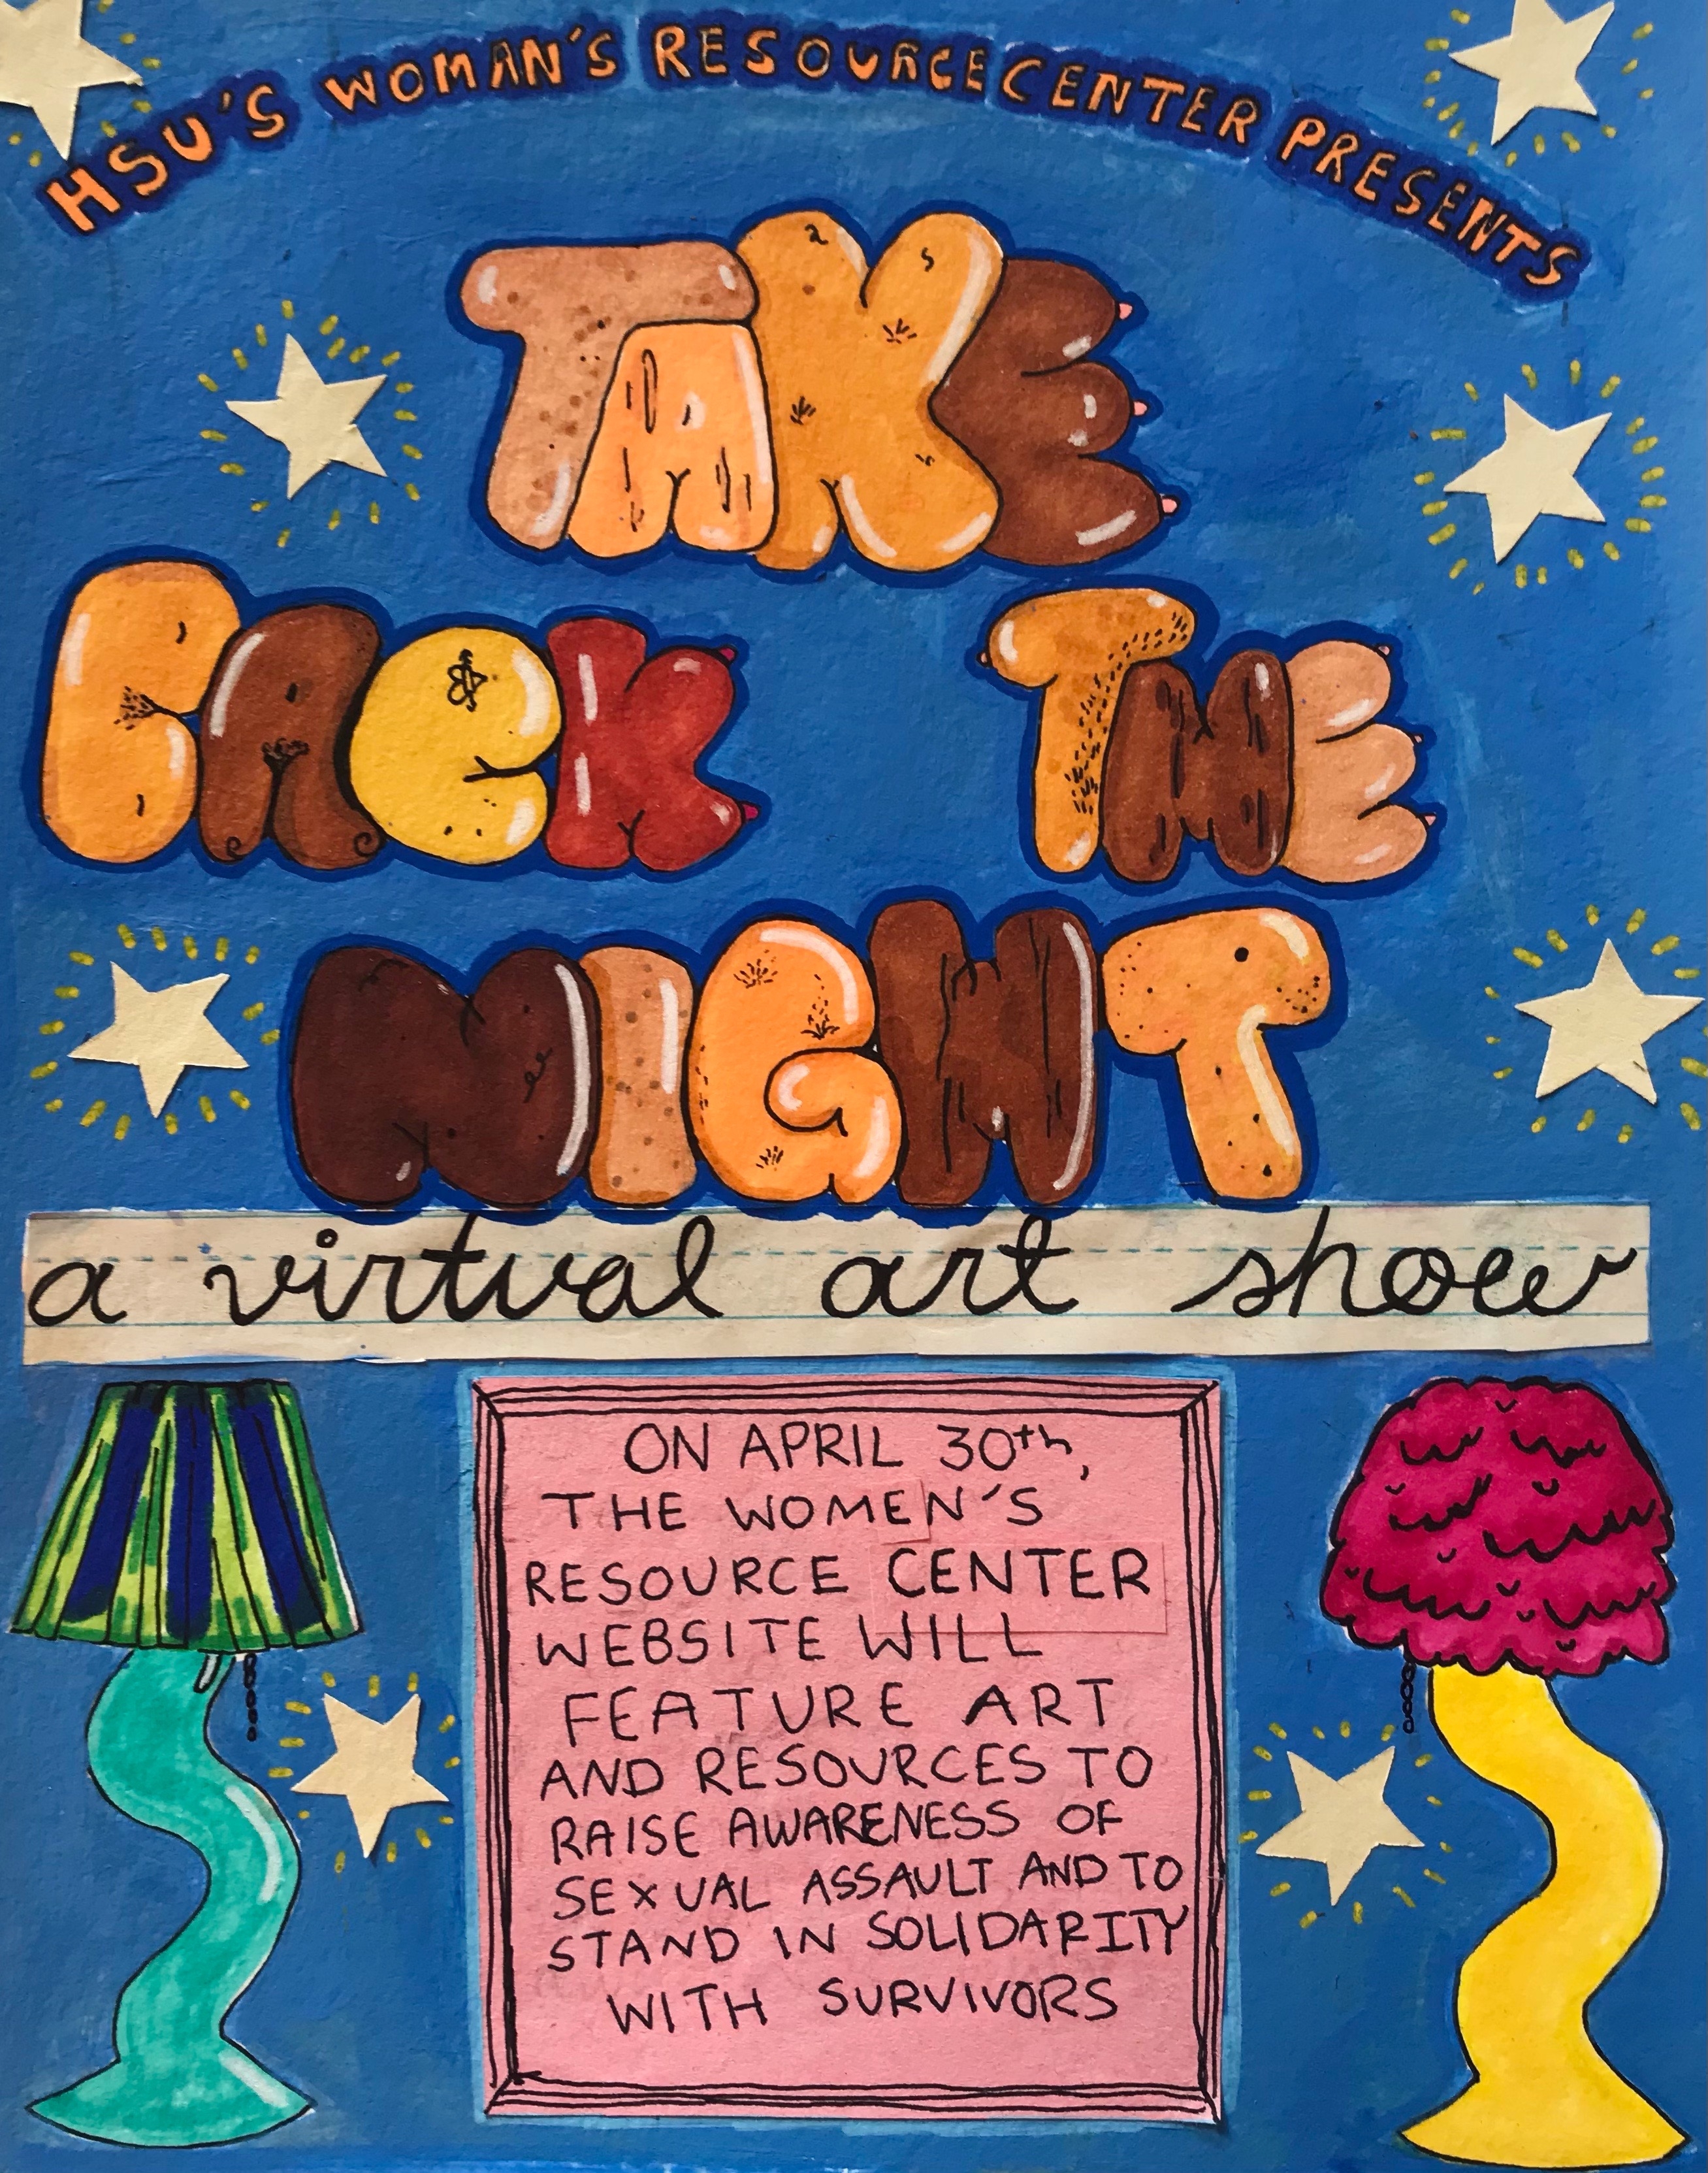 HSU'S WOMAN'S RESOURCE CENTER PRESENTS
TAKE
BACK THE
NIGHT
a virtual art show
ON APRIL 30th,
THE WOMEN'S
RESOURCE CENTER
WEBSITE WILL
FEATURE ART
AND RESOURCES TO
RAISE AWARENESS OF
SEXUAL ASSAULT AND TO
STAND IN SOLIDARITY
WITH SURVIVORS